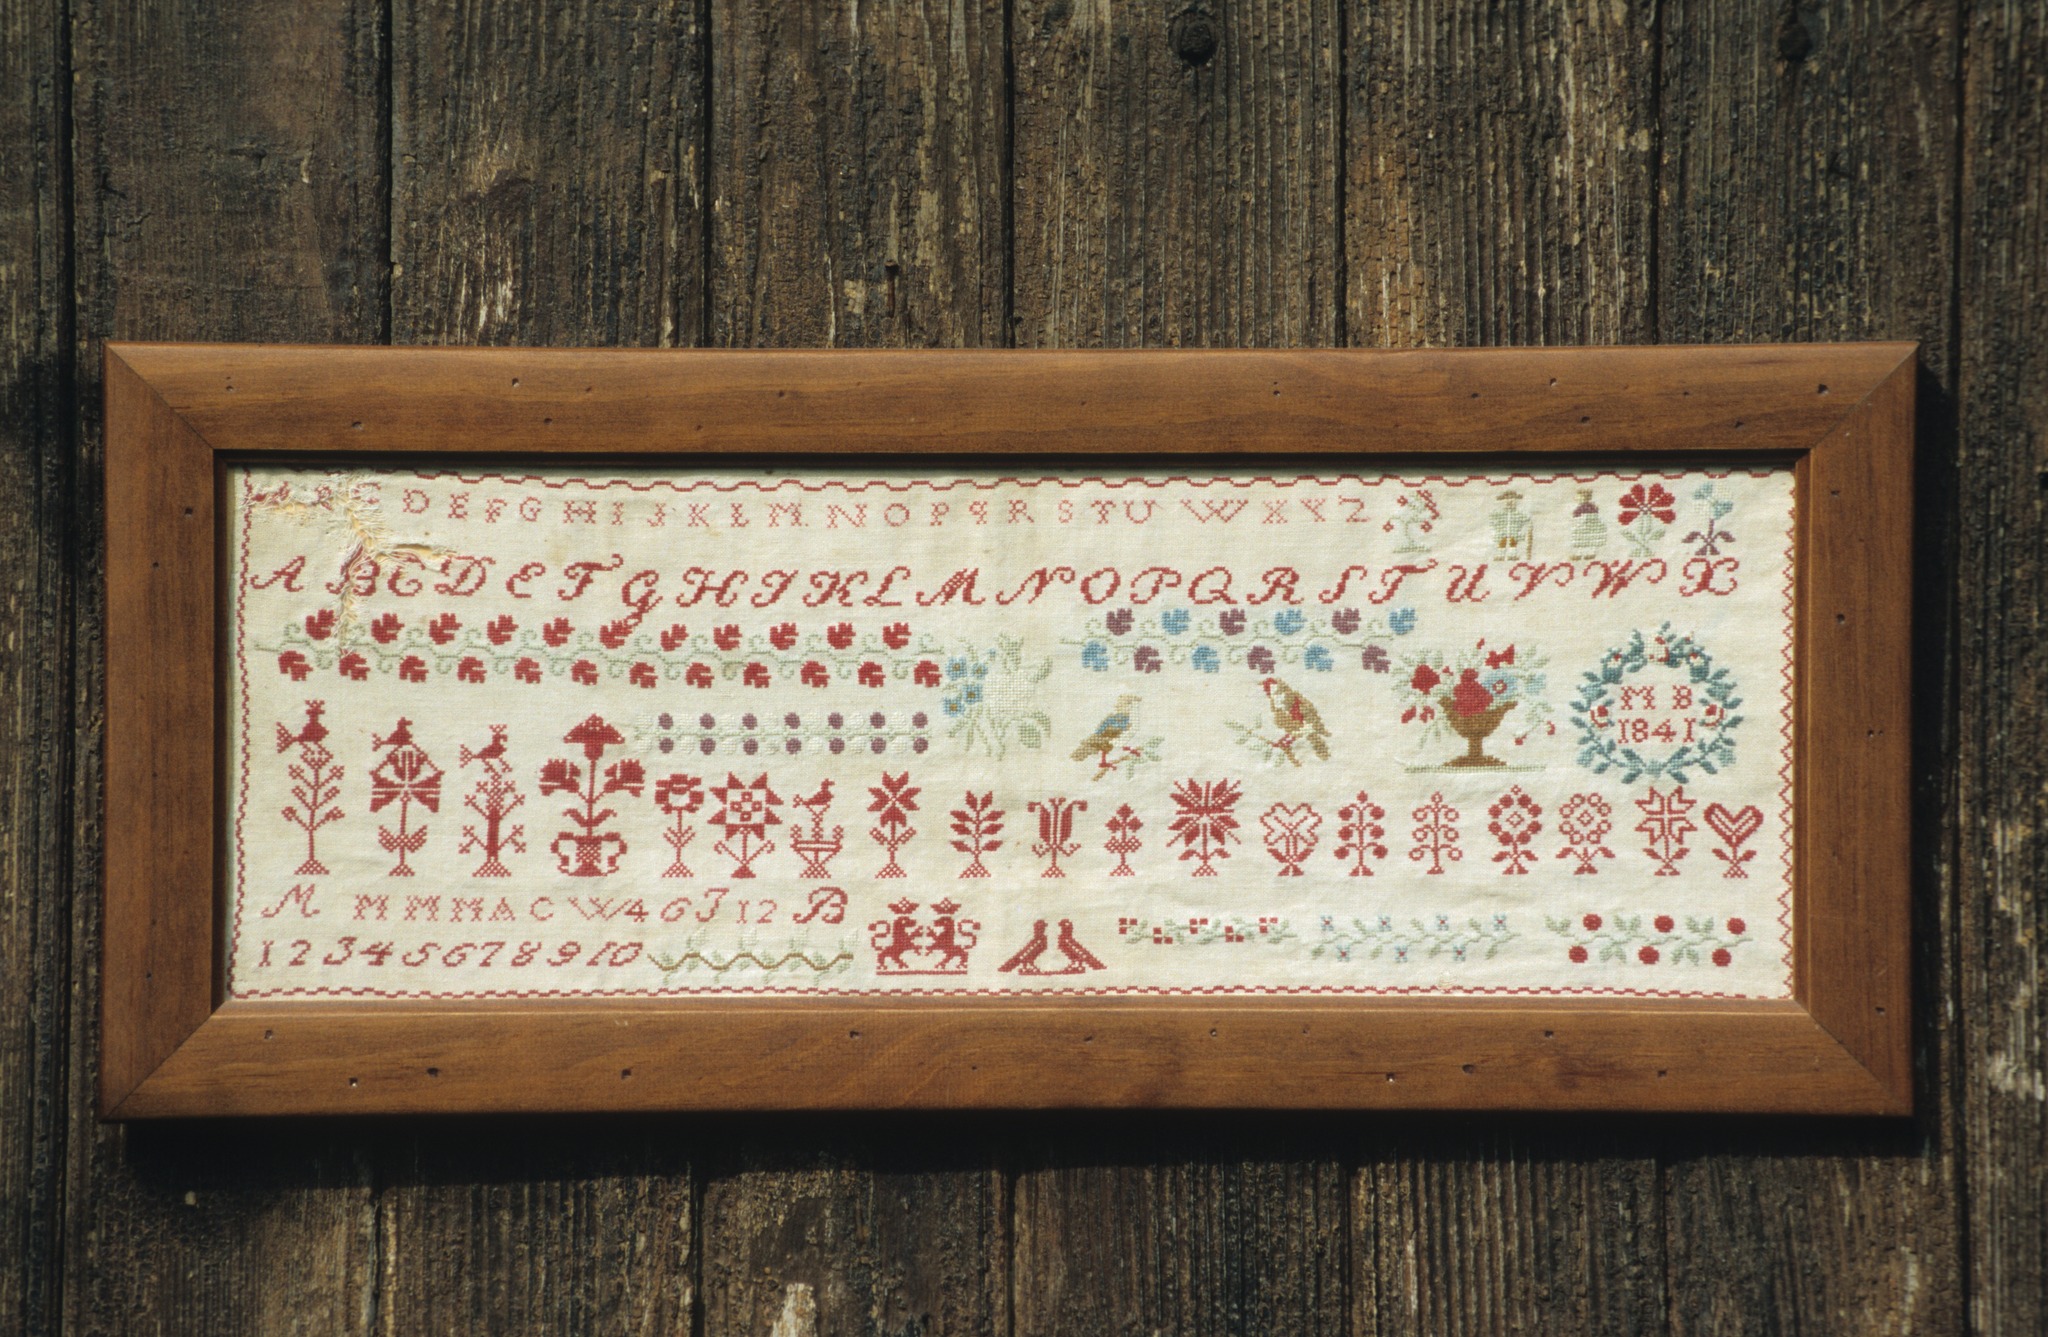 A B C D E F G H I J K L M N O P q R S T U W X Y Z
A B C D E F G H I K L M N O P Q R S T U V W X
M B
1841
M M M M A C W 4 6 J 12 B
1 2 3 4 5 6 7 8 9 10